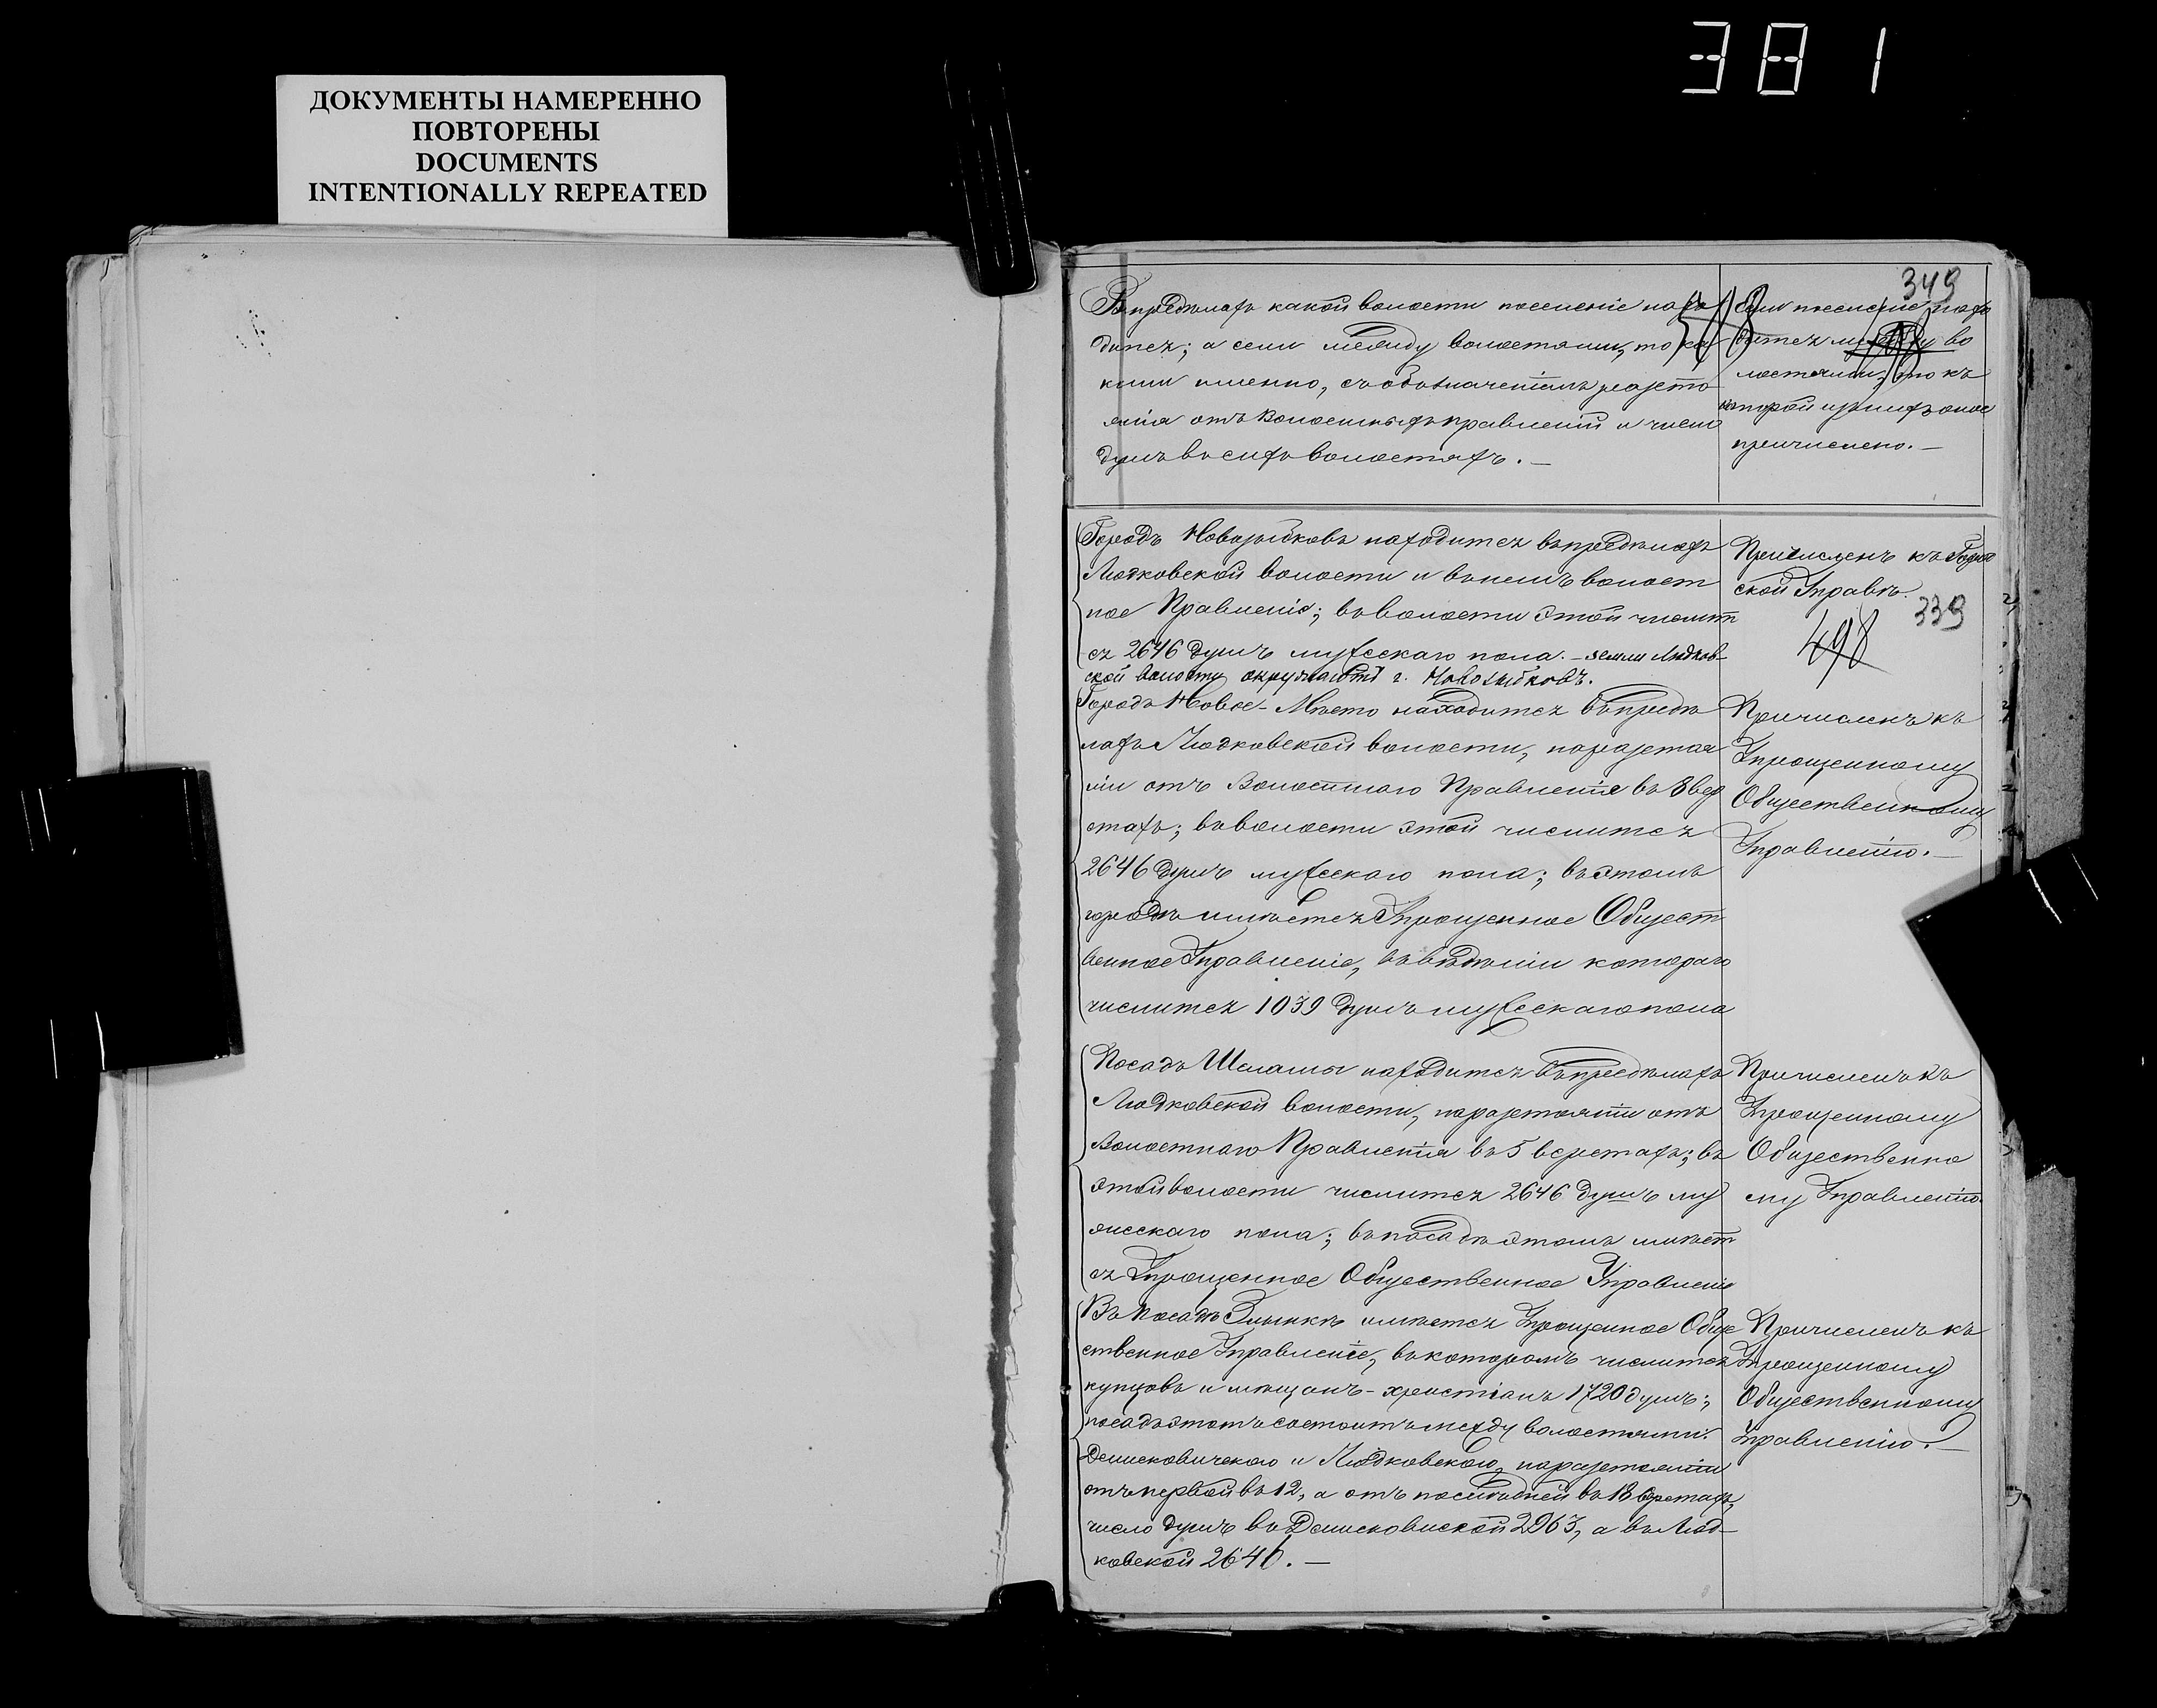 381
ДОКУМЕНТЫ НАМЕРЕННО
ПОВТОРЕНЫ
DOCUMENTS
INTENTIONALLY REPEATED
349
Въ предѣлахъ какой волости поселеніе нахо
дится; а если между волостями, то ка
кими именно, съ обозначеніемъ разсто
янія отъ Волостныхъ правленій и число
душъ въ сихъ волостяхъ. —
Если поселеніе нахо
дится между во
лостями, то къ
которой изъ нихъ оное
причислено. —
Городъ Новозыбковъ находится въ предѣлахъ
Людковской волости и въ немъ волост
ное Правленіе; въ волости этой числит
ся 2646 душъ мужескаго пола. — земли Людков-
ской волости окружаютъ г. Новозыбковъ.
Причисленъ къ Город
ской Управѣ.
339
498
Городъ Новое-Мѣсто находится въ предѣ
лахъ Людковской волости, на разстоя
ніи отъ Волостнаго Правленія въ 8 вер
стахъ; въ волости этой числится
2646 душъ мужескаго пола; въ этомъ
городѣ имѣется Упрощенное Общест
венное Управленіе, въ вѣдѣніи котораго
числится 1039 душъ мужескаго пола
Причисленъ къ
Упрощенному
Общественному
Управленію. —
Посадъ Шеломы находится въ предѣлахъ
Людковской волости, на разстояніи отъ
Волостнаго Правленія въ 5 верстахъ; въ
этой волости числится 2646 душъ му
жескаго пола; въ посадѣ этомъ имѣет
ся Упрощенное Общественное Управленіе
Причисленъ къ
Упрощенному
Общественно
му Управленію.
Въ Посадѣ Злынкѣ имѣется Упрощенное Обще
ственное Управленіе, въ которомъ числится
купцовъ и мѣщанъ-христіанъ 1720 душъ;
посадъ этотъ состоитъ между волостями:
Деменковичскою и Людковскою, на разстояніи
отъ первой въ 12, а отъ послѣдней въ 18 верстахъ,
число душъ въ 2963, а въ Люд-
ковской 2646. —
Причисленъ къ
Упрощенному
Общественному
Управленію. —